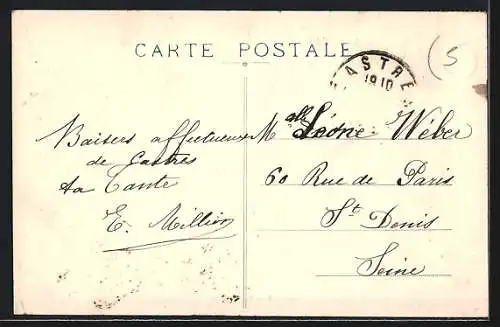 CARTE POSTALE
ASTRE
1810
(5
Baisers affectueux
de Castres
ta Tante
E. Millier
Melle Léonie Wéber
60 Rue de Paris
St Denis
Seine